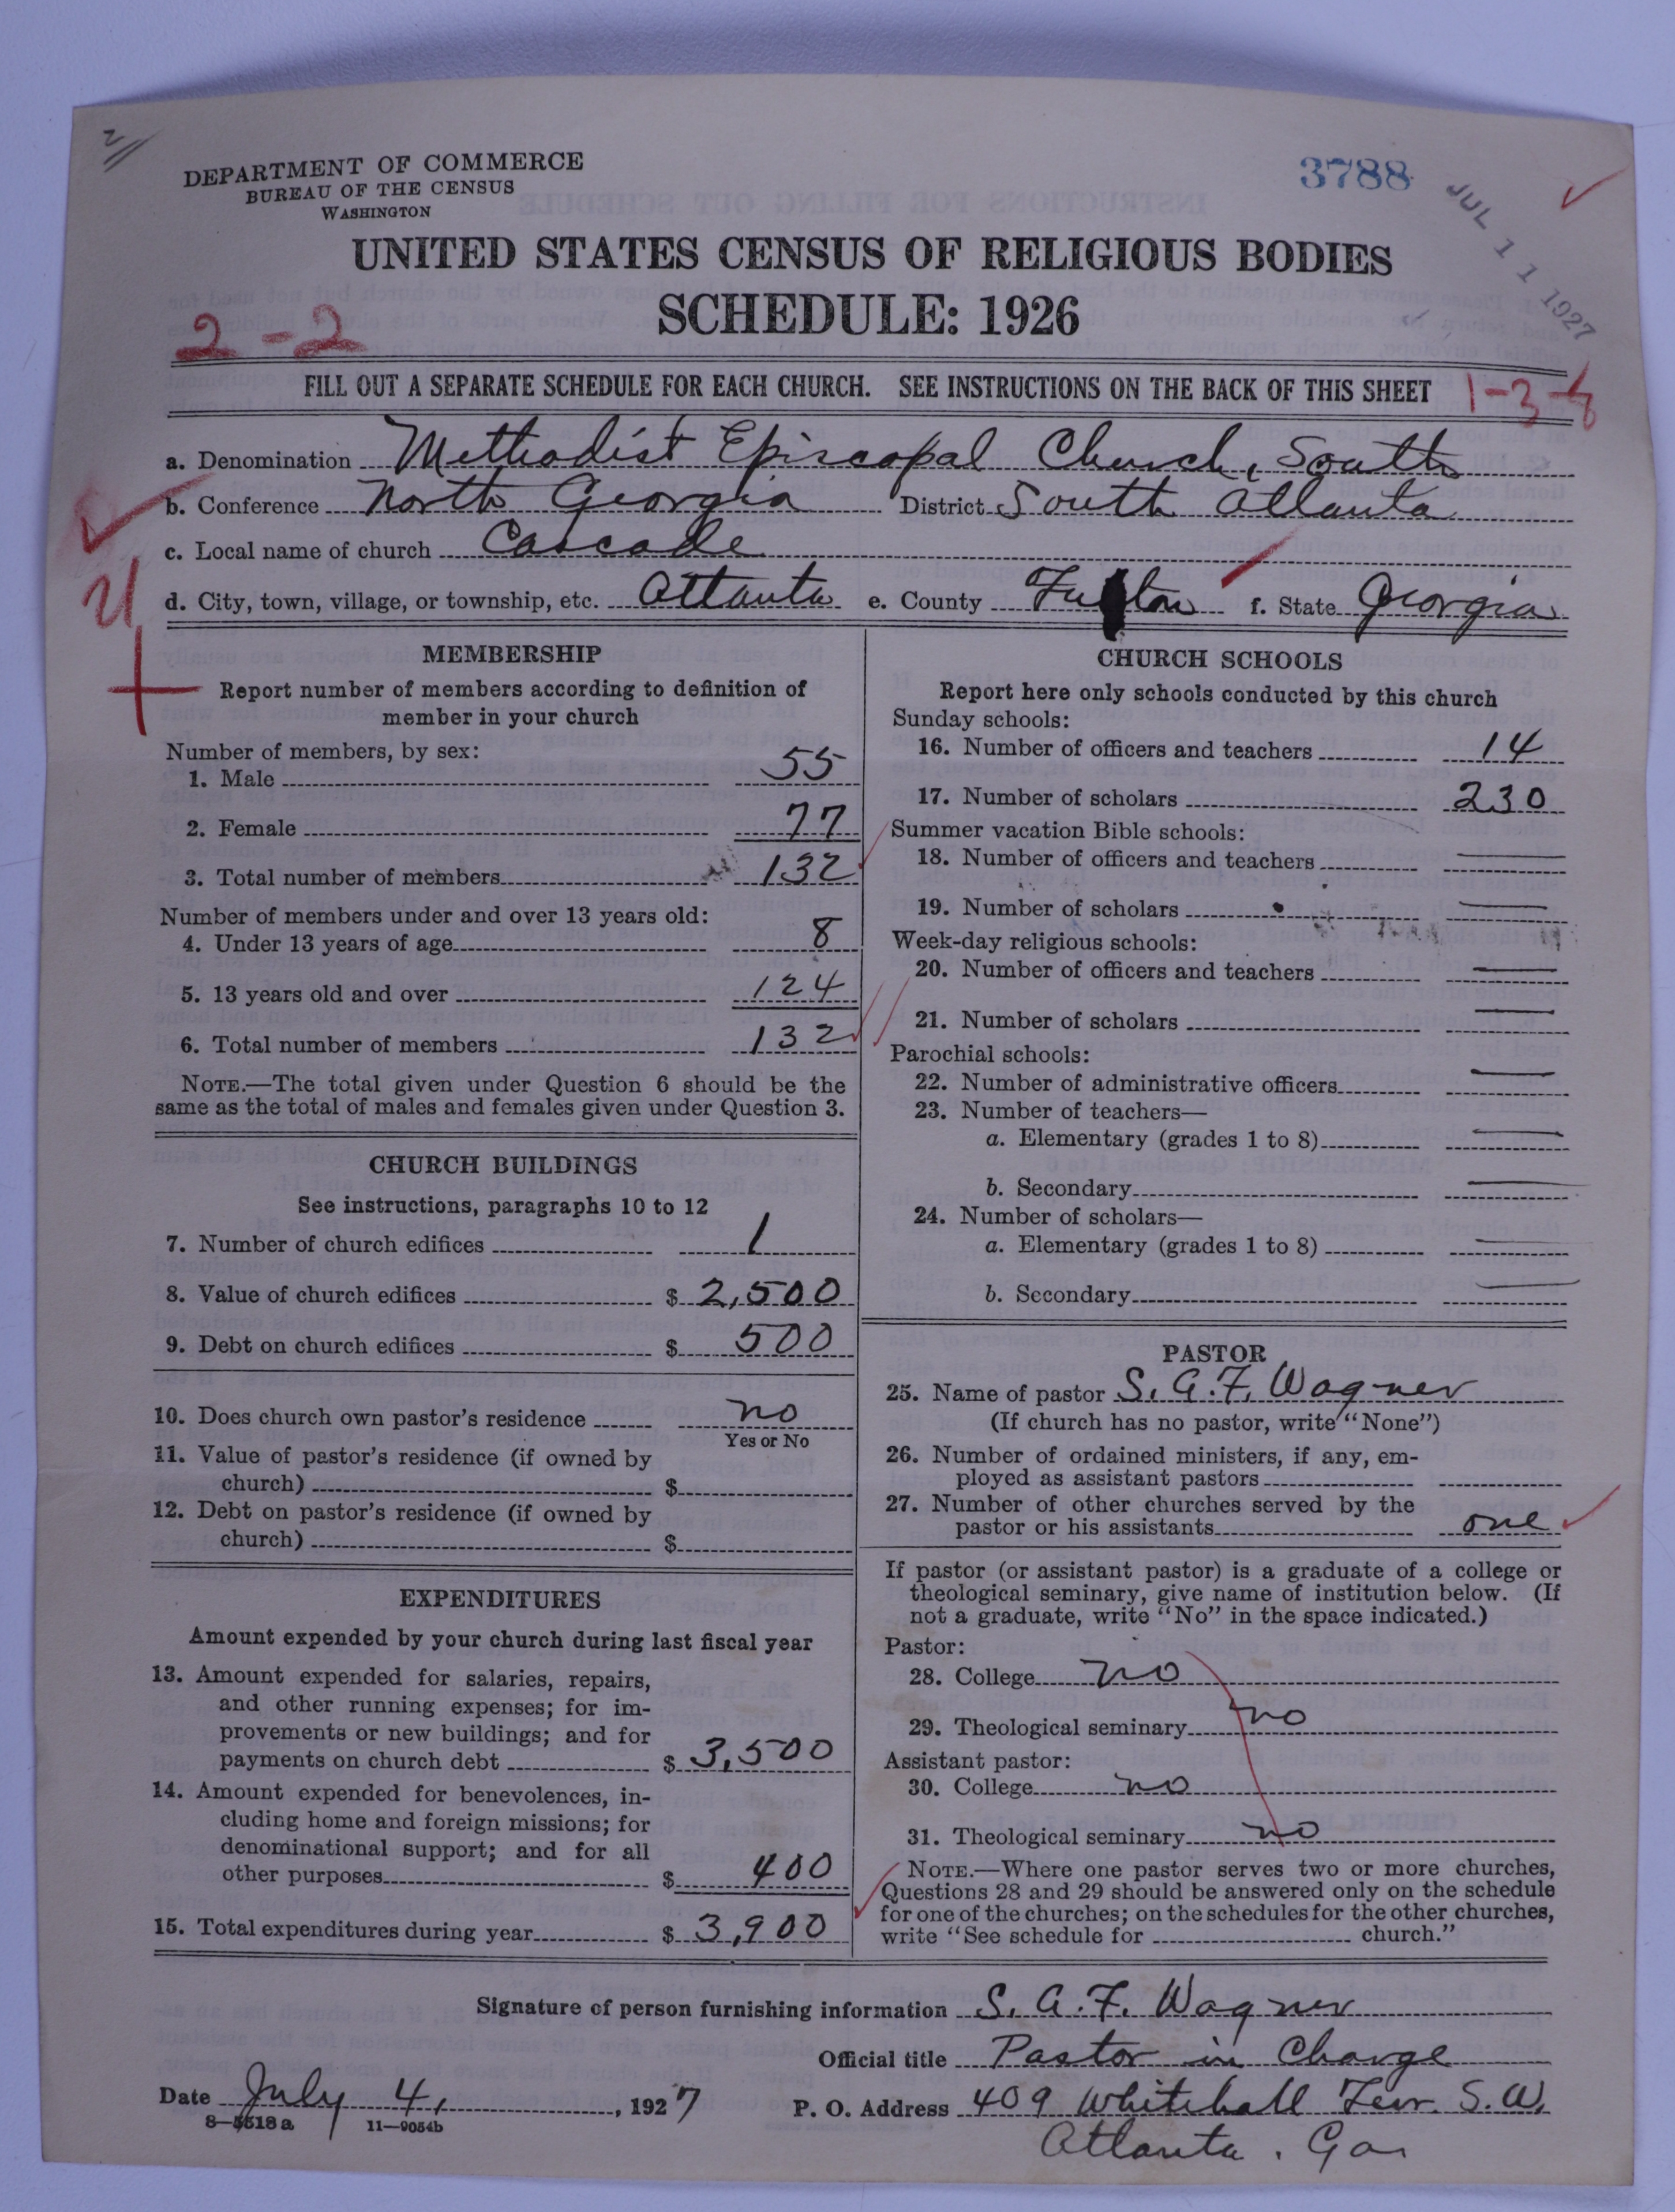 DEPARTMENT OF COMMERCE
BUREAU OF THE CENSUS
WASHINGTON
3788
JUL 11 1927
UNITED STATES CENSUS OF RELIGIOUS BODIES
SCHEDULE: 1926
2-2
FILL OUT A SEPARATE SCHEDULE FOR EACH CHURCH. SEE INSTRUCTIONS ON THE BACK OF THIS SHEET
1-3-8
a. Denomination Methodist Episcopal Church, South
b. Conference North Georgia District South Atlanta
c. Local name of church Cascade
d. City, town, village, or township, etc. Atlanta e. County Fulton f. State Georgia
MEMBERSHIP
Report number of members according to definition of
member in your church
Number of members, by sex:
1. Male 55
2. Female 77
3. Total number of members 132
Number of members under and over 13 years old:
4. Under 13 years of age 8
5. 13 years old and over 124
6. Total number of members 132
NOTE.—The total given under Question 6 should be the
same as the total of males and females given under Question 3.
CHURCH BUILDINGS
See instructions, paragraphs 10 to 12
7. Number of church edifices 1
8. Value of church edifices $ 2,500
9. Debt on church edifices $ 500
10. Does church own pastor's residence no
Yes or No
11. Value of pastor's residence (if owned by
church) $
12. Debt on pastor's residence (if owned by
church) $
EXPENDITURES
Amount expended by your church during last fiscal year
13. Amount expended for salaries, repairs,
and other running expenses; for im-
provements or new buildings; and for
payments on church debt $ 3,500
14. Amount expended for benevolences, in-
cluding home and foreign missions; for
denominational support; and for all
other purposes $ 400
15. Total expenditures during year $ 3,900
CHURCH SCHOOLS
Report here only schools conducted by this church
Sunday schools:
16. Number of officers and teachers 14
17. Number of scholars 230
Summer vacation Bible schools:
18. Number of officers and teachers —
19. Number of scholars —
Week-day religious schools:
20. Number of officers and teachers —
21. Number of scholars —
Parochial schools:
22. Number of administrative officers —
23. Number of teachers—
a. Elementary (grades 1 to 8) —
b. Secondary —
24. Number of scholars—
a. Elementary (grades 1 to 8) —
b. Secondary —
PASTOR
25. Name of pastor S. A. F. Wagner
(If church has no pastor, write "None")
26. Number of ordained ministers, if any, em-
ployed as assistant pastors
27. Number of other churches served by the
pastor or his assistants one
If pastor (or assistant pastor) is a graduate of a college or
theological seminary, give name of institution below. (If
not a graduate, write "No" in the space indicated.)
Pastor:
28. College no
29. Theological seminary no
Assistant pastor:
30. College no
31. Theological seminary no
NOTE.—Where one pastor serves two or more churches,
Questions 28 and 29 should be answered only on the schedule
for one of the churches; on the schedules for the other churches,
write "See schedule for church."
Signature of person furnishing information S. A. F. Wagner
Official title Pastor in Charge
Date July 4, 1927 P. O. Address 409 Whitehall Terr. S. W.
8—5518a 11—9054b
Atlanta. Ga